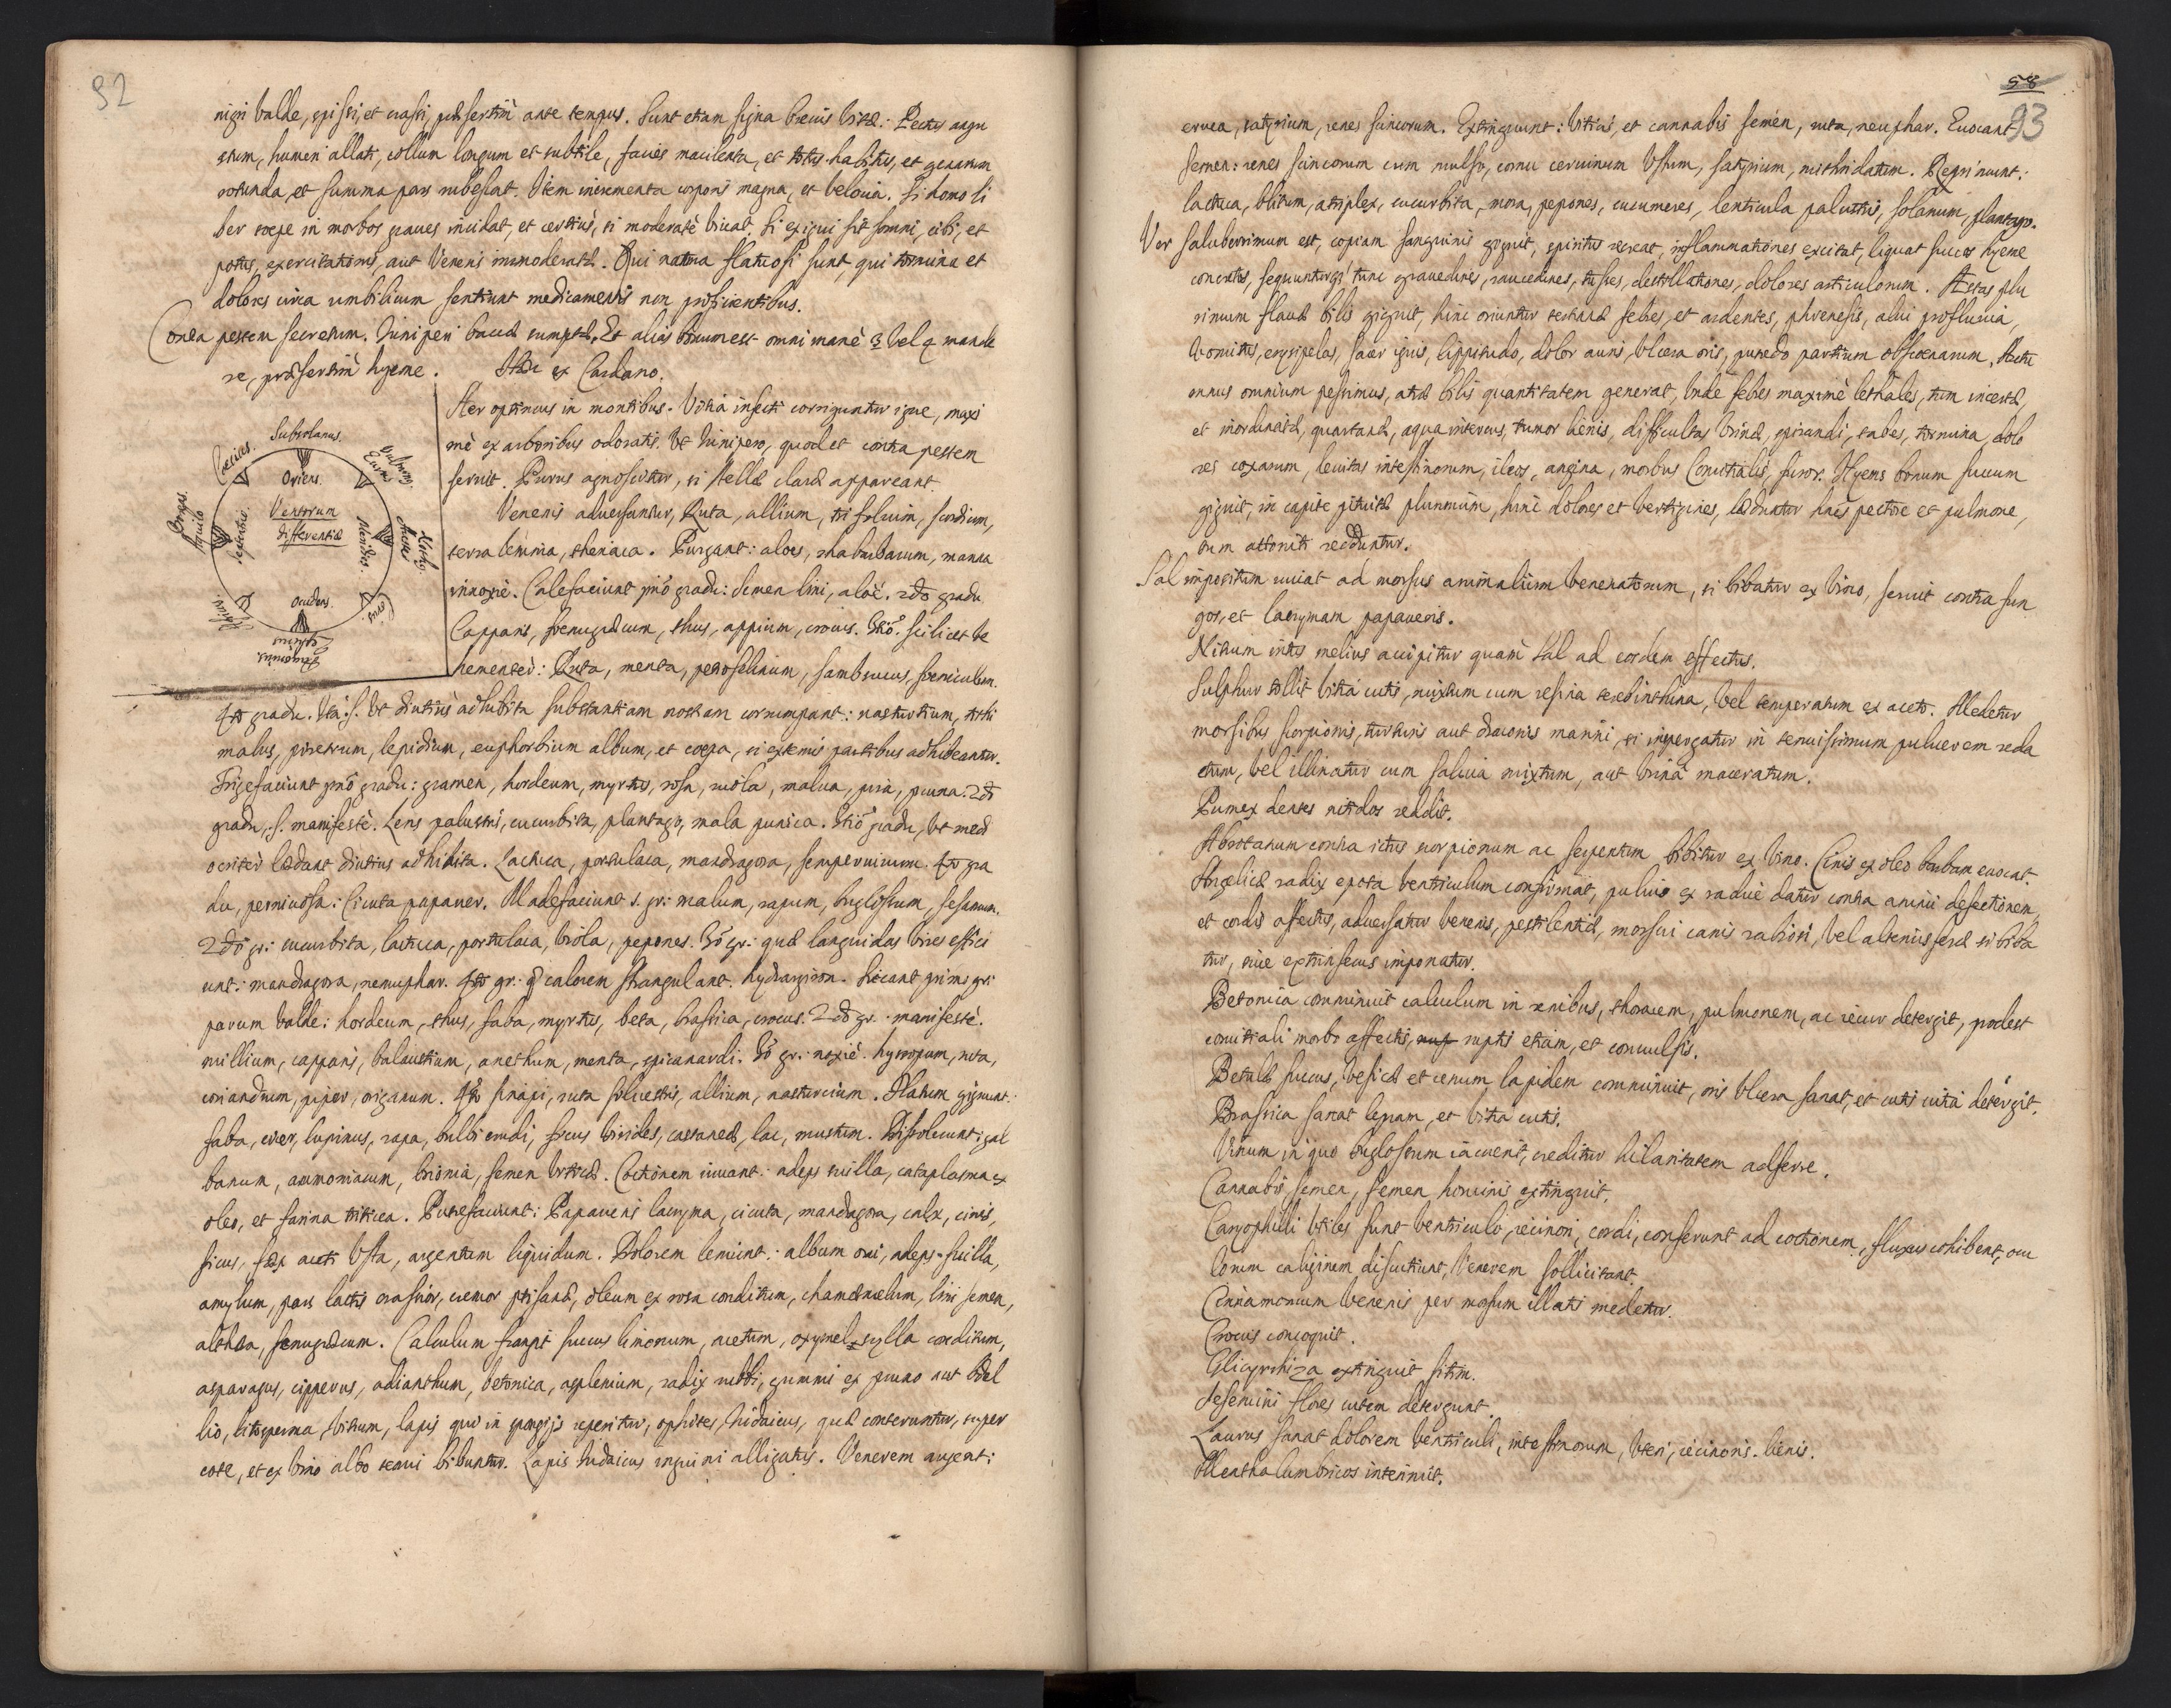 92
nigri valde, spissi, et crassi, præsertim ante tempus. Sunt etiam signa brevis vitæ: Pectus angu
stum, humeri allati, collum longum et subtile, facies macilenta, et totus habitus, et genarum
rotunda et summa pars rubescat. Item incrementa corporis magna, et velocia. Si homo li
ber sæpe in morbos graves incidat, et certius, si moderate vivat. Si exigui sit somni, cibi, et
potus, exercitationis, aut Veneris immoderatæ. Qui natura flatuosi sunt, qui tormina et
dolores circa umbilicum sentiunt medicamentis non proficientibus.
Contra pestem secretum. Juniperi baccæ sumptæ. Et alias bonum est omni mane 3 vel 4 mande
re, præsertim hyeme. Hæc ex Cardano.
Aer optimus in montibus. Vitia infecti corriguntur igne, maxi
me ex arboribus odoratis, ut Junipero, quod et contra pestem
servit. Purus agnoscitur, si stellæ claræ appareant.
Venenis adversantur, Ruta, allium, trifolium, scordium,
terra lemnia, theriaca. Purgant: aloes, rhabarbarum, manna
innoxie. Calefaciunt pmo gradu: semen lini, aloe. 2do gradu
Capparis, fenugræcum, thus, appium, crocus. 3tio. scilicet ve
hementer: Ruta, menta, petroselinum, sambucus, foeniculum.
Subsolanus.
Cæcias.
Vulturn9.
Eurus
Oriens.
Boreas.
Aquilo
Septentrio.
Ventorum
differentiæ
Meridies.
Notus
Auster
Occidens.
Corus.
Africus.
Zephirus
Favonius
4to gradu. Ita .s. ut diutius adhibita substantiam nostram corrumpant: nasturtium, tithi
malus, piretrum, lepidium, euphorbium album, et coepa, si externis partibus adhibeantur.
Frigefaciunt pmo gradu: gramen, hordeum, myrtus, rosa, viola, malva, pira, pruna. 2do
gradu, .s. manifeste. Lens palustris, cucurbita, plantago, mala punica. 3tio gradu, ut med
ocriter lædant diutius adhibita. Lactuca, portulaca, mandragora, sempervivum. 4to gra
du, perniciosa: Cicuta papaver. Madefaciunt .1. gr: malum, rapum, buglossum, sesamum.
2do gr: cucurbita, lactuca, portulaca, viola, pepones. 3o gr: quæ languidas vires effici
unt: mandragora, nenuphar. 4to gr: q calorem strangulant. hydrargiron. Siccant primi gr:
parum valde: hordeum, thus, faba, myrtus, beta, brassica, crocus. 2do gr. manifeste.
millium, capparis, balaustium, anethum, menta, spicanardi. 3o gr: noxie. hyssopum, ruta,
coriandrum, piper, origanum. 4to sinapi, ruta silvestris, allium, nasturcium. Flatum gignunt:
faba, cicer, lupinus, rapa, bulbi crudi, ficus virides, castaneæ, lac, mustum. Dissolvunt: gal
banum, ammoniacum, brionia, semen urticæ. Coctionem iuvant: adeps suilla, cataplasma ex
oleo, et farina triticea. Putrefaciunt: Papaveris lacryma, cicuta, mandragora, calx, cinis,
ficus, fæx aceti usta, argentum liquidum. Dolorem leniunt: album ovi, adeps suilla,
amylum, pars lactis crassior, cremor ptisanæ, oleum ex rosa conditum, chamæmelum, lini semen,
althæa, fenugræcum. Calculum frangit succus limonum, acetum, oxymel scylla conditum,
asparagus, cipperus, adianthum, betonica, asplenium, radix rubbi, gummi ex pruno aut bdel
lio, litosperma, vitrum, lapis qui in spongijs reperitur, ophites, Iudaicus, quæ conteruntur, super
cote, et ex vino albo tenui bibuntur. Lapis Iudaicus inguini alligatus. Venerem augent:
58
93
eruca, satyrium, renes scincorum. Extinguunt: Viticis, et cannabis semen, ruta, neuphar. Evocant
semen: renes scincorum cum mulso, cornu cervinum Ustum, satyrium, mithridatum. Reprimunt:
lactuca, blitum, atriplex, cucurbita, mora, pepones, cucumeres, lenticula palustris, solanum, plantago.
Ver saluberrimum est, copiam sanguinis gignit, spiritus recreat, inflammationes excitat, liquat succos hyeme
concretos, sequunturq; tunc gravedines, raucedines, tusses, destillationes, dolores articulorum. Æstas plu
rimum flavæ bilis gignit, hinc oriuntur tertianæ febres, et ardentes, phrenesis, alvi profluvia,
vomitus, erysipelas, sacer ignis, lippitudo, dolor auris, ulcera oris, putredo partium obscænarum. Autu
mnus omnium pessimus, atræ bilis quantitatem generat, unde febres maxime lethales, tum incertæ,
et inordinatæ, quartanæ, aqua intercus, tumor lienis, difficultas urinæ, spirandi, tabes, tormina, dolo
res coxarum, levitas intestinorum, ileos, angina, morbus Comitialis, furor. Hyems bonum succum
gignit, in capite pituitæ plurimum, hinc dolores et vertigines, læduntur hæc pectore et pulmone,
tum attoniti redduntur.
Sal impositum iuvat ad morsus animalium venenatorum, si bibatur ex vino, servit contra fun
gos, et lacrymam papaveris.
Nitrum intus melius accipitur quam Sal ad eosdem effectus.
Sulphur tollit vitia cutis, mixtum cum resina terebinthina, vel temperatum ex aceto. Medetur
morsibus scorpionis, turturis aut draconis marini, si inspergatur in tenuissimum pulverem reda
ctum, vel illinatur cum saliva mixtum, aut urina maceratum.
Pumex dentes nitidos reddit.
Abrotanum contra ictus scorpionum ac serpentum bibitur ex Vino. Cinis ex oleo barbam evocat.
Angelicæ radix epota ventriculum confirmat, pulvis ex radice datur contra animi defectionem,
et cordis affectus, adversatur venenis, pestilentiæ, morsui canis rabiosi, vel alterius feræ si biba
tur, sive extrinsecus imponatur.
Betonica comminuit calculum in renibus, thoracem, pulmonem, ac iecur detergit, prodest
comitiali morbo affectis, ruptis etiam, et convulsis.
Betulæ succus, vesicæ et renum lapidem comminuit, oris ulcera sanat, et cutis vitia detergit.
Brassica sanat lepram, et vitia cutis.
Vinum in quo buglossum iacuerit, creditur hilaritatem adferre.
Cannabis semen, semen hominis extinguit.
Caryophilli utiles sunt ventriculo, iecinori, cordi, conferunt ad coctionem, fluxus cohibent, ocu
lorum caliginem discutiunt, Venerem sollicitant.
Cinnamomum venenis per morsum illatis medetur.
Crocus concoquit.
Glicyrrhiza extinguit sitim.
Jesemini flores cutem detergunt.
Laurus sanat dolorem ventriculi, intestinorum, uteri, iecinoris, lienis.
Mentha lumbricos interimit.